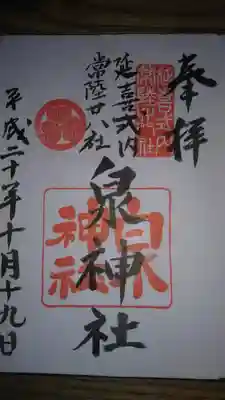 奉拝
延喜式内
常陸廿八社
泉神社
泉神社
平成二十年十月十九日